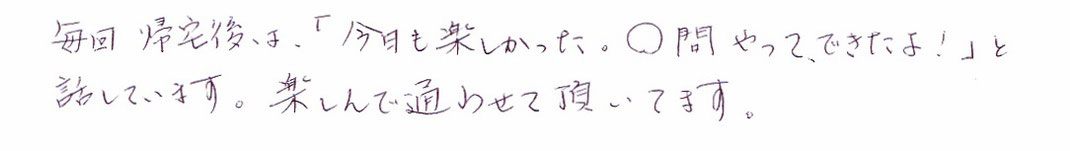 毎回 帰宅後は、「今日も楽しかった。〇問 やって、できたよ!」と
話しています。楽しんで通わせて頂いてます。